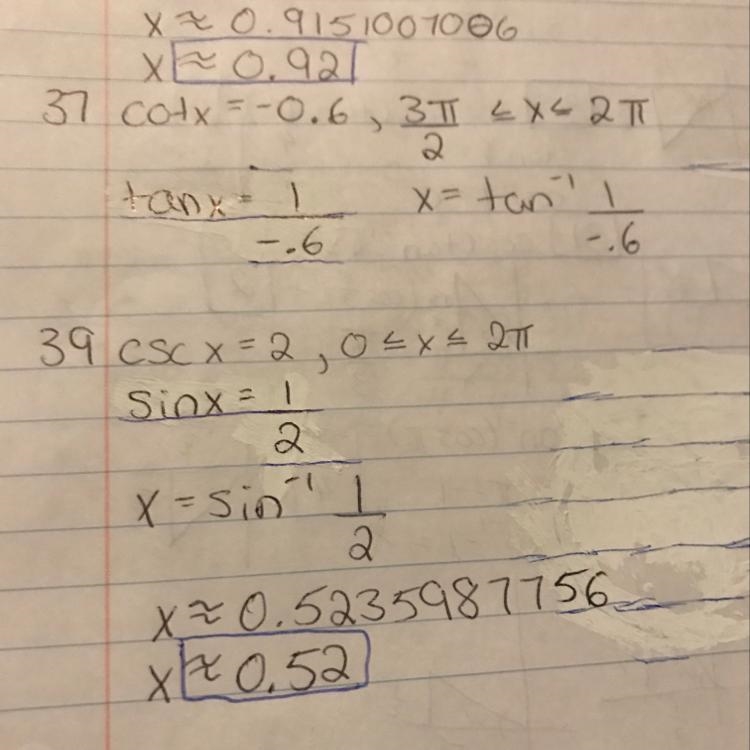 x ≈ 0.9151007006
x ≈ 0.92
37 cotx = -0.6, 3π/2 ≤ x ≤ 2π
tanx = 1/-.6 x = tan⁻¹ 1/-.6
39 csc x = 2, 0 ≤ x ≤ 2π
sinx = 1/2
x = sin⁻¹ 1/2
x ≈ 0.5235987756
x ≈ 0.52